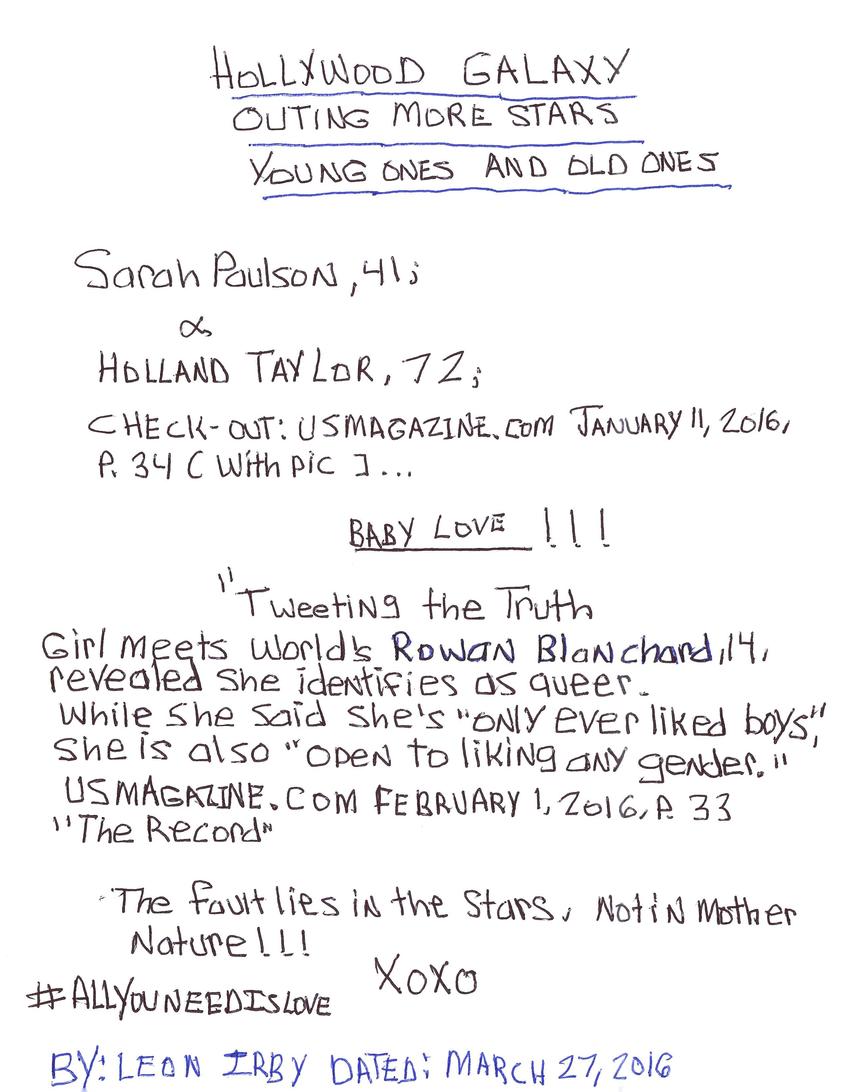 HOLLYWOOD GALAXY
OUTING MORE STARS
YOUNG ONES AND OLD ONES
Sarah Paulson, 41;
&
HOLLAND TAYLOR, 72;
CHECK-OUT: USMAGAZINE.COM JANUARY 11, 2016,
P. 34 [ With pic ]...
BABY LOVE !!!
"Tweeting the Truth
Girl meets world's Rowan Blanchard, 14,
revealed she identifies as queer.
While she said she's "only ever liked boys",
she is also "open to liking any gender."
USMAGAZINE.COM FEBRUARY 1, 2016, P. 33
"The Record"
The fault lies in the Stars, Not in Mother
Nature!!!
XOXO
#ALLYOUNEEDISLOVE
BY: LEON IRBY DATED: MARCH 27, 2016